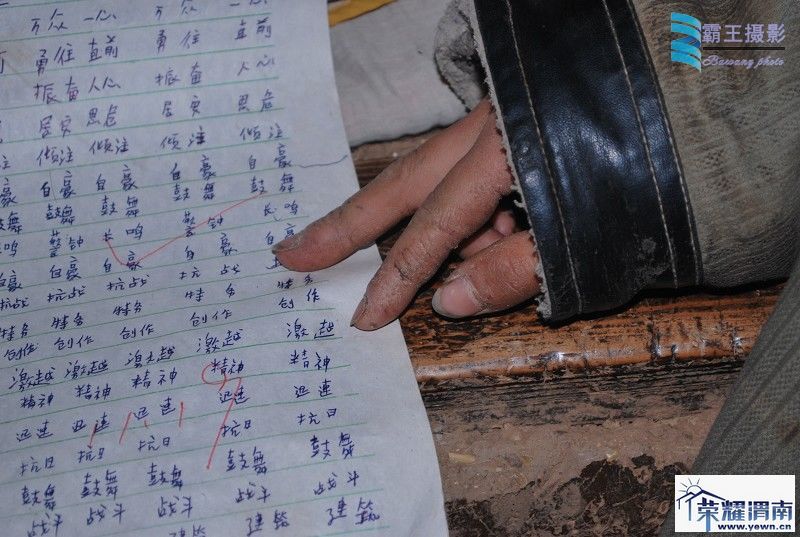 万众 一心 万众 一心
勇往 直前 勇往 直前
振奋 人心 振奋 人心
居安 思危 居安 思危
倾注 倾注 倾注 倾注
自豪 自豪 自豪 自豪
鼓舞 鼓舞 鼓舞 鼓舞
警钟 长鸣 警钟 长鸣
自豪 自豪 自豪 自豪
抗战 抗战 抗战 抗战
特务 特务 特务 特务 特务
创作 创作 创作 创作 创作
激越 激越 激越 激越 激越
精神 精神 精神 精神 精神
迅速 迅速 迅速 迅速
抗日 抗日 抗日 抗日 抗日
鼓舞 鼓舞 鼓舞 鼓舞 鼓舞
战斗 战斗 战斗 战斗 战斗
建筑 建筑 建筑
霸王摄影
Bawang photo
荣耀渭南
www.yewn.cn